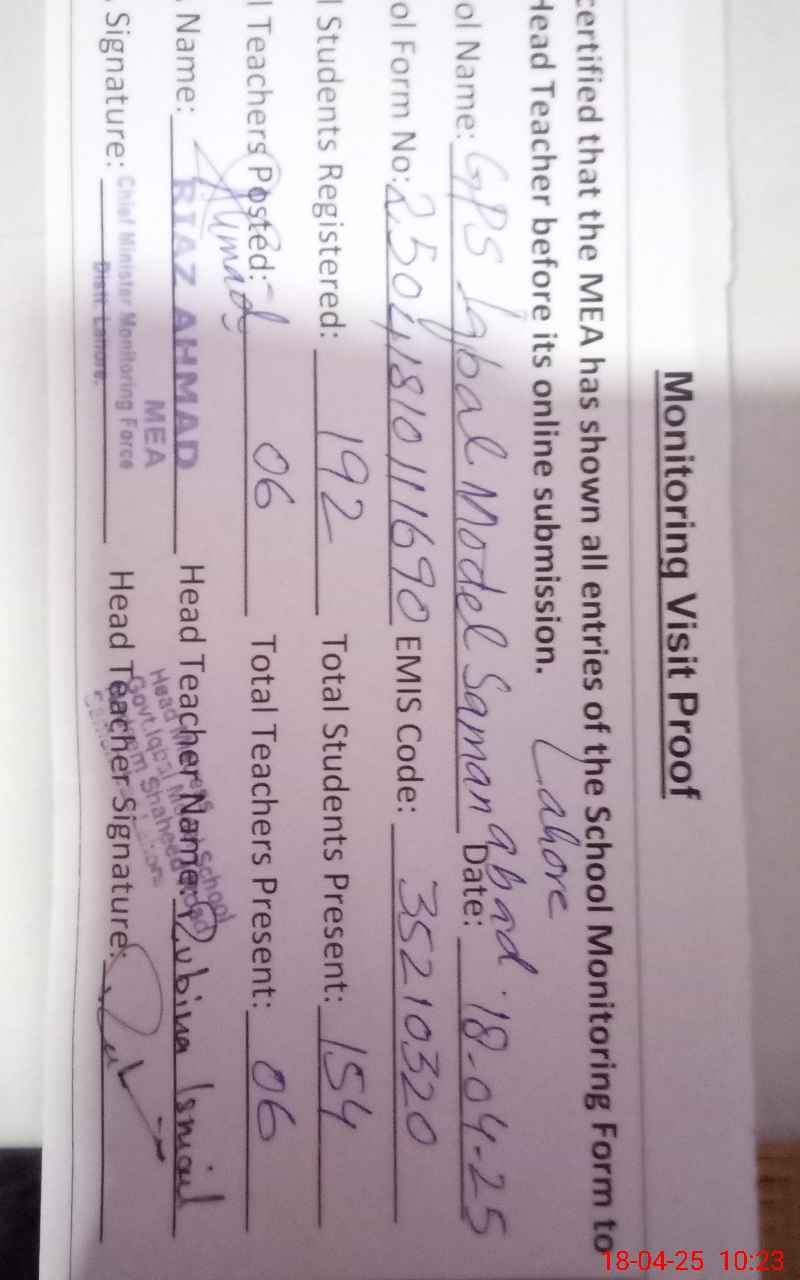 Monitoring Visit Proof
certified that the MEA has shown all entries of the School Monitoring Form to
Head Teacher before its online submission.
Lahore
ol Name: GPS Iqbal Model Samanabad Date: 18-04-25
ol Form No: 25041810111690 EMIS Code: 35210320
l Students Registered: 192 Total Students Present: 154
l Teachers Posted: 06 Total Teachers Present: 06
Name: RIAZ AHMAD Head Teacher Name: Rubina Ismail
MEA
Signature: Chief Minister Monitoring Force Head Teacher Signature:
Distt: Lahore.
Ahmad
18-04-25 10:23